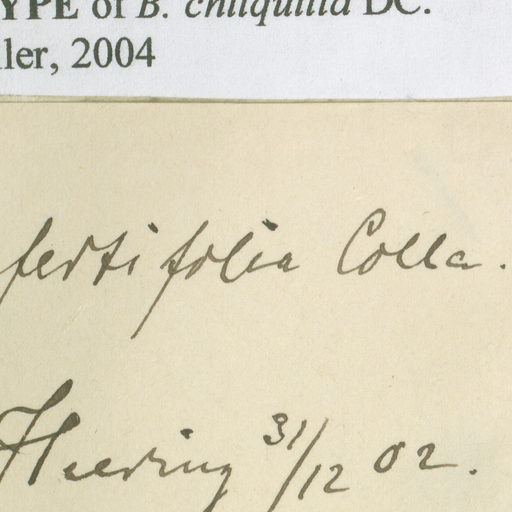 YPE of B. chilquilla DC.
ler, 2004
fertifolia Colla.
Heering 31/12 02.